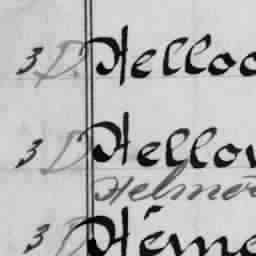 3 D. Helloc
3 D Hellov
Helmer
3 D Héme